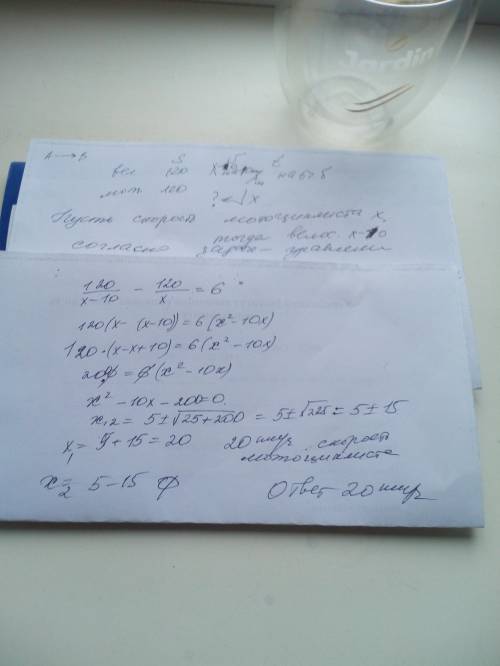 Jardin
A → B S t
вел 120 на 6 ч б
мот 120 ? x
Пусть скорост мотоциклиста x,
тогда велос. x-10
согласно
120/(x-10) - 120/x = 6
120(x-(x-10)) = 6(x²-10x)
120·(x-x+10) = 6(x²-10x)
= 6(x²-10x)
x²-10x-200=0.
x₁,₂ = 5±√(25+200) = 5±√225 = 5±15
x₁ = 5+15=20 20 км/ч скорост
мотоциклиста
x₂= 5-15 ∅ Ответ 20 км/ч